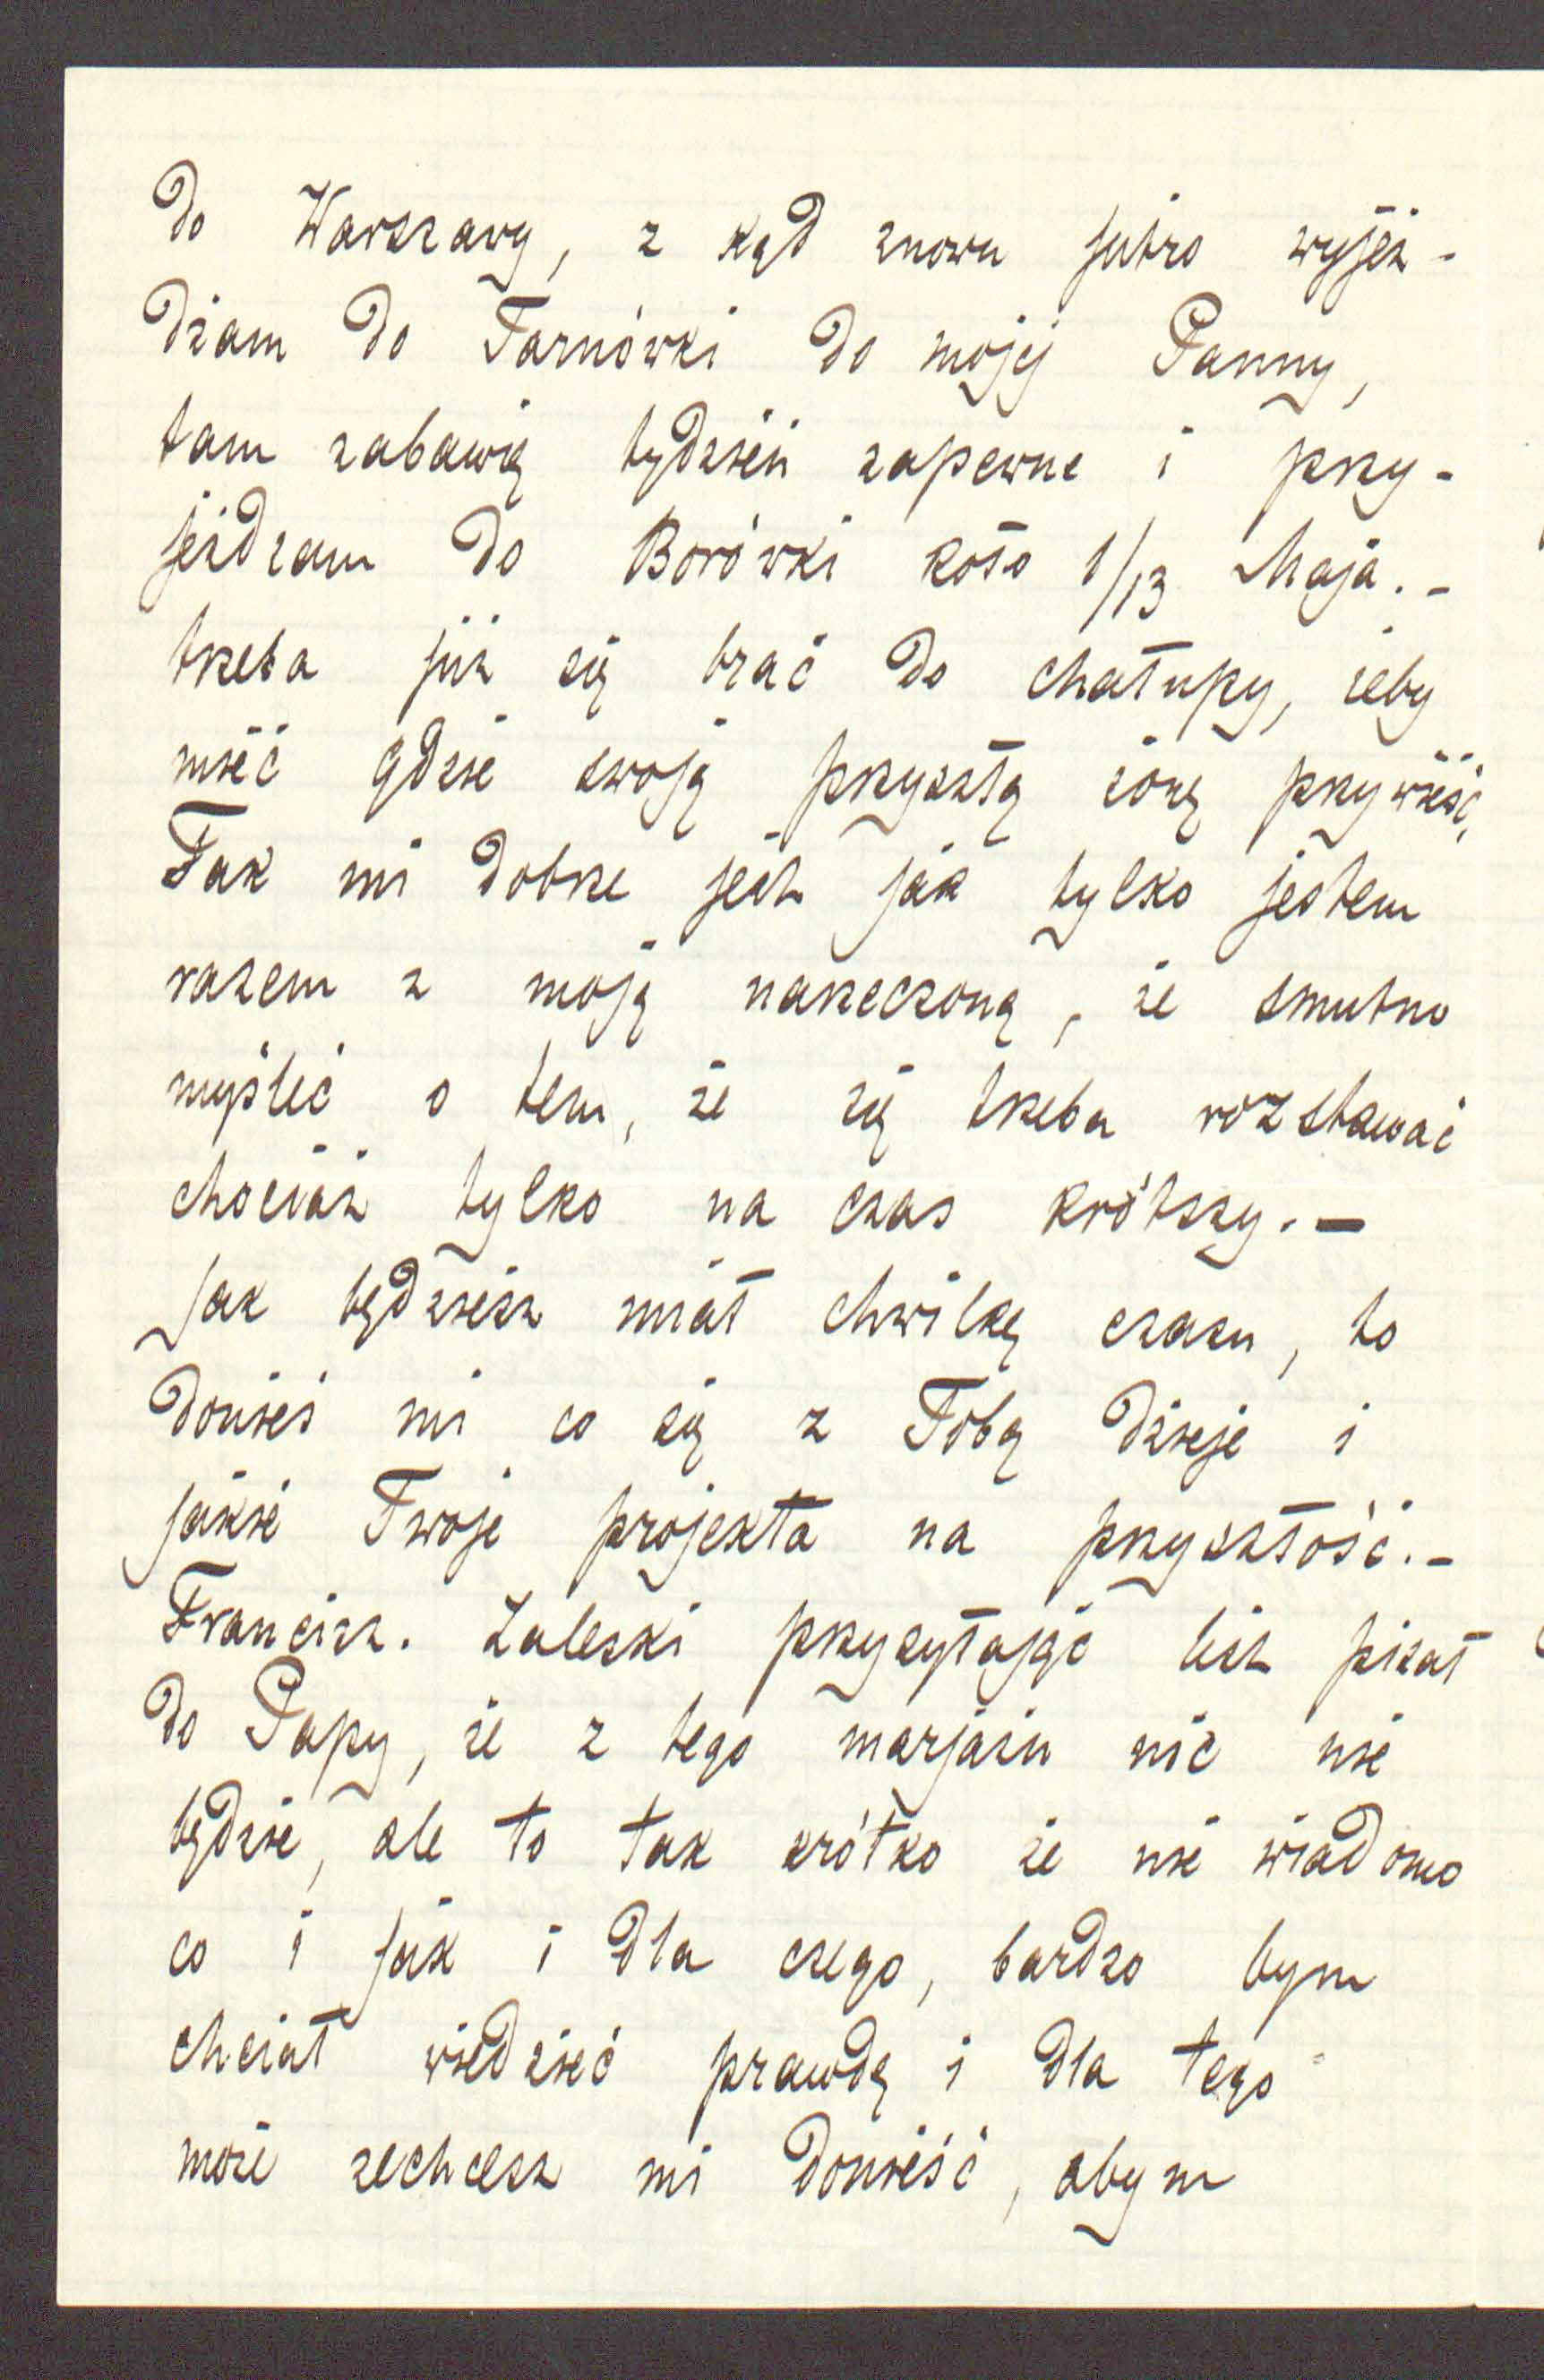 do Warszawy, z kąd znowu jutro wyjeż-
dżam do Tarnówki do mojej Panny,
tam zabawię tydzień zapewne i przy-
jeżdżam do Borówki koło 1/13 Maja. -
trzeba już się brać do chałupy, żeby
mieć gdzie swoją przyszłą żonę przywieść,
Tak mi dobrze jest jak tylko jestem
razem z moją narzeczoną, że smutno
myśleć o tem, że się trzeba rozstawać
chociaż tylko na czas krótszy. -
Jak będziesz miał chwilkę czasu, to
donieś mi co się z Tobą dzieje i
jakie Twoje projekta na przyszłość. -
Francisz. Zaleski przysyłając list pisał
do Papy, że z tego marjażu nic nie
będzie, ale to tak krótko że nie wiadomo
co i jak i dla czego, bardzo bym
chciał wiedzieć prawdę i dla tego
może zechcesz mi donieść, abym